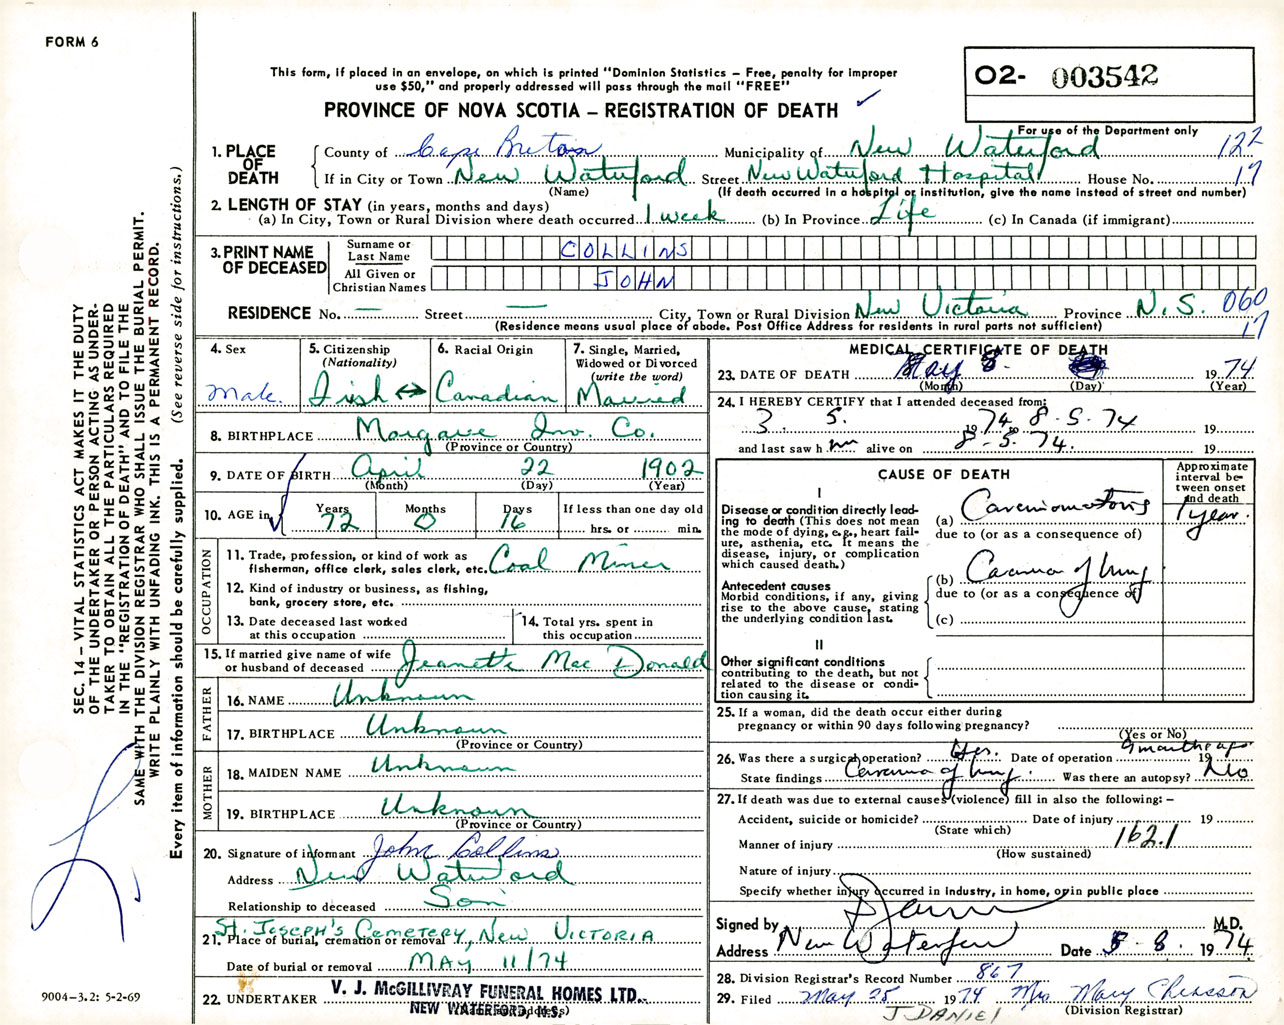 FORM 6
This form, if placed in an envelope, on which is printed "Dominion Statistics – Free, penalty for improper
use $50," and properly addressed will pass through the mail "FREE"
PROVINCE OF NOVA SCOTIA – REGISTRATION OF DEATH
O2- 003542
For use of the Department only
SEC. 14 – VITAL STATISTICS ACT MAKES IT THE DUTY
OF THE UNDERTAKER OR PERSON ACTING AS UNDER-
TAKER TO OBTAIN ALL THE PARTICULARS REQUIRED
IN THE "REGISTRATION OF DEATH" AND TO FILE THE
SAME WITH THE DIVISION REGISTRAR WHO SHALL ISSUE THE BURIAL PERMIT.
WRITE PLAINLY WITH UNFADING INK. THIS IS A PERMANENT RECORD.
Every item of information should be carefully supplied. (See reverse side for instructions.)
1. PLACE OF DEATH
County of Cape Breton Municipality of New Waterford 122
If in City or Town New Waterford Street New Waterford Hospital House No. 17
(Name) (If death occurred in a hospital or institution, give the name instead of street and number)
2. LENGTH OF STAY (in years, months and days)
(a) In City, Town or Rural Division where death occurred 1 week (b) In Province Life (c) In Canada (if immigrant)
3. PRINT NAME OF DECEASED
Surname or Last Name COLLINS
All Given or Christian Names JOHN
RESIDENCE No. — Street — City, Town or Rural Division New Victoria Province N.S. 060
(Residence means usual place of abode. Post Office Address for residents in rural parts not sufficient) 17
4. Sex Male
5. Citizenship (Nationality) Irish ↔
6. Racial Origin Canadian
7. Single, Married, Widowed or Divorced (write the word) Married
8. BIRTHPLACE Margaree Inv. Co.
(Province or Country)
9. DATE OF BIRTH April 22 1902
(Month) (Day) (Year)
10. AGE in Years 72 Months 0 Days 16 If less than one day old hrs. or min.
OCCUPATION
11. Trade, profession, or kind of work as fisherman, office clerk, sales clerk, etc. Coal Miner
12. Kind of industry or business, as fishing, bank, grocery store, etc.
13. Date deceased last worked at this occupation
14. Total yrs. spent in this occupation
15. If married give name of wife or husband of deceased Jeanette Mac Donald
FATHER
16. NAME Unknown
17. BIRTHPLACE Unknown
(Province or Country)
MOTHER
18. MAIDEN NAME Unknown
19. BIRTHPLACE Unknown
(Province or Country)
20. Signature of informant John Collins
Address New Waterford
Relationship to deceased Son
St. JOSEPH'S CEMETERY, NEW VICTORIA
21. Place of burial, cremation or removal
Date of burial or removal MAY 11/74
22. UNDERTAKER V. J. McGILLIVRAY FUNERAL HOMES LTD.
NEW WATERFORD, N.S.
9004-3.2: 5-2-69
MEDICAL CERTIFICATE OF DEATH
23. DATE OF DEATH May 8 1974
(Month) (Day) (Year)
24. I HEREBY CERTIFY that I attended deceased from:
3. 5. 19 74 8 - 5 - 74 19
and last saw h im alive on 8 - 5. 74. 19
CAUSE OF DEATH
Approximate interval between onset and death
I
Disease or condition directly lead-
ing to death (This does not mean
the mode of dying, e.g., heart fail-
ure, asthenia, etc. It means the
disease, injury, or complication
which caused death.)
(a) Carcinomatosis 1 year.
due to (or as a consequence of)
Antecedent causes
Morbid conditions, if any, giving
rise to the above cause, stating
the underlying condition last.
(b) Carcinoma of lung
due to (or as a consequence of)
(c)
II
Other significant conditions
contributing to the death, but not
related to the disease or condi-
tion causing it.
25. If a woman, did the death occur either during
pregnancy or within 90 days following pregnancy?
(Yes or No)
26. Was there a surgical operation? Yes. Date of operation 9 months ago 19
State findings Carcinoma of lung. Was there an autopsy? No
27. If death was due to external causes (violence) fill in also the following: –
Accident, suicide or homicide? Date of injury 19
(State which)
Manner of injury 162.1
(How sustained)
Nature of injury
Specify whether injury occurred in industry, in home, or in public place
Signed by M.D.
Address New Waterford Date 8. 1974
28. Division Registrar's Record Number 867
29. Filed May 25 1974 Mrs Mary Chiasson
(Division Registrar)
J DANIEL